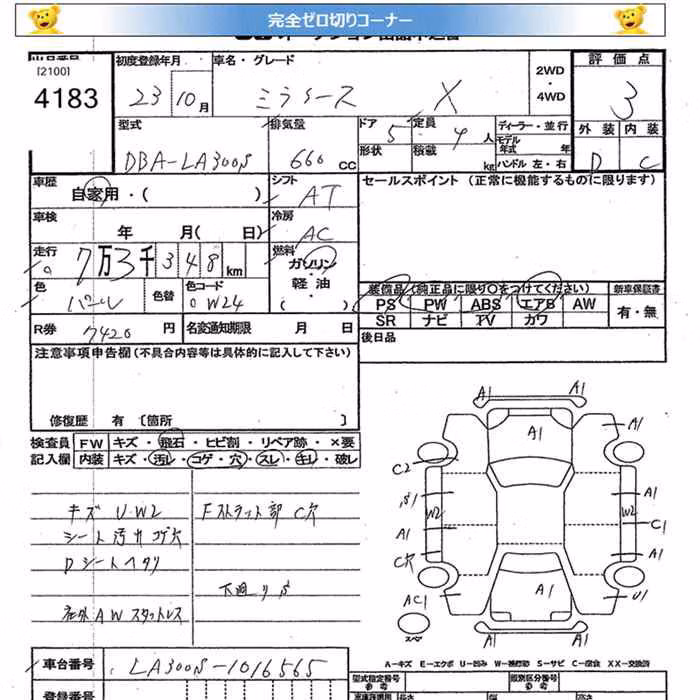 完全ゼロ切りコーナー
[2100]
4183
初度登録年月
23 10月
車名・グレード
ミライース X
2WD
・
4WD
評価点
3
外装 内装
D C
型式
DBA-LA300S
排気量
660 cc
ドア 5
形状
定員 4 人
積載 kg
ディーラー・並行
モデル年式 年
ハンドル 左・右
車歴
自家用・( )
シフト
AT
セールスポイント (正常に機能するものに限ります)
車検
年 月( 日)
冷房
AC
走行
7万3千348km
燃料
ガソリン・
軽油・
( )
色
パール
色替
色コード
W24
装備品 (純正品に限り○をつけてください)
PS PW ABS エアB AW
SR ナビ TV カワ
新車保証書
有・無
R券 7420 円
名変通知期限 月 日
後日品
注意事項申告欄 (不具合内容等は具体的に記入して下さい)
修復歴 有 [箇所 ]
検査員
記入欄
FW キズ・飛石・ヒビ割・リペア跡・×要
内装 キズ・汚レ・コゲ・穴・スレ・キレ・破レ
キズ U・W2
シート汚れ コゲ穴
Dシートヘタリ
社外AWスタットレス
Fストラット部 C穴
下廻りS
A1 A1
A1 A1
C2
A1
W2 W2
A1 C1
C穴 A1
A1
AC1 U1
スペア
A1 A1
A-キズ E-エクボ U-凹み W-補修跡 S-サビ C-腐食 XX-交換済
車台番号 LA300S-1016565
登録番号
型式指定番号
参考
類別区分番号
参考